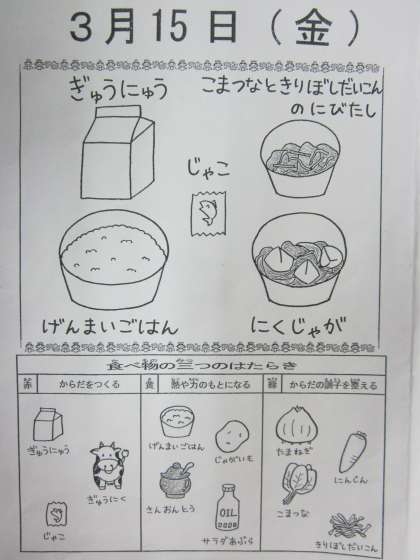 3月15日(金)
ぎゅうにゅう
こまつなときりぼしだいこん
のにびたし
じゃこ
げんまいごはん
にくじゃが
食べ物の三つのはたらき
赤 からだをつくる
黄 熱や力のもとになる
緑 からだの調子を整える
ぎゅうにゅう
ぎゅうにく
じゃこ
げんまいごはん
じゃがいも
さんおんとう
OIL
サラダあぶら
たまねぎ
にんじん
こまつな
きりぼしだいこん